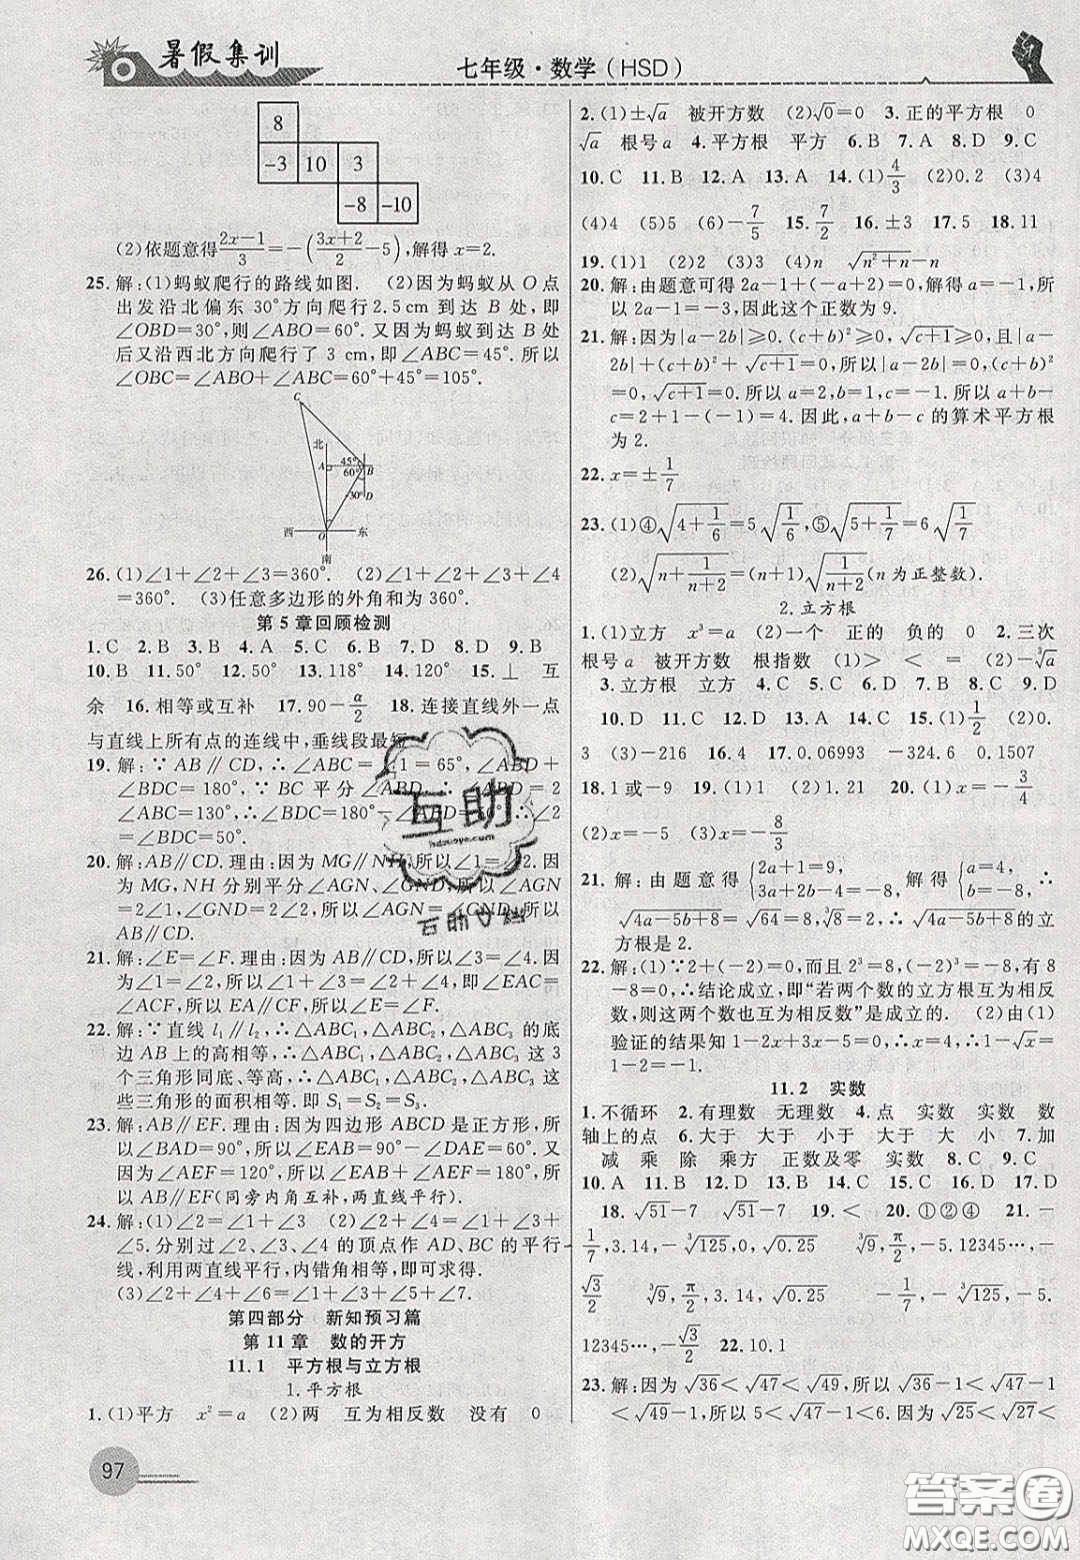 暑假集训
七年级·数学(HSD)
8
-3 10 3
-8 -10
(2)依题意得\frac{2x-1}{3}=-(\frac{3x+2}{2}-5),解得x=2.
25.解:(1)蚂蚁爬行的路线如图. (2)因为蚂蚁从O点
出发沿北偏东30°方向爬行了2.5 cm到达B处,即
∠OBD=30°,则∠ABO=60°.又因为蚂蚁到达B处
后又沿西北方向爬行了3 cm,即∠ABC=45°.所以
∠OBC=∠ABO+∠ABC=60°+45°=105°.
C
北
A 45° B
60°
30° D
西 O 东
南
26.(1)∠1+∠2+∠3=360°. (2)∠1+∠2+∠3+∠4
=360°. (3)任意多边形的外角和为360°.
第5章回顾检测
1.C 2.B 3.B 4.A 5.C 6.B 7.D 8.D 9.B
10.B 11.50° 12.50° 13.118° 14.120° 15.⊥ 互
余 16.相等或互补 17.90-\frac{α}{2} 18.连接直线外一点
与直线上所有点的连线中,垂线段最短
19.解:∵AB∥CD,∴∠ABC=∠1=65°,∠ABD+
∠BDC=180°,∵BC平分∠ABD,∴∠ABD=2
∠ABC=130°,∴∠BDC=180°-∠ABD=50°,∴∠2
=∠BDC=50°.
20.解:AB∥CD.理由:因为MG∥NH,所以∠1=∠2.因
为MG,NH分别平分∠AGN、∠GND,所以∠AGN=
2∠1,∠GND=2∠2,所以∠AGN=∠GND,所以
AB∥CD.
21.解:∠E=∠F.理由:因为AB∥CD,所以∠3=∠4.因
为∠1=∠2,所以∠1+∠3=∠2+∠4,即∠EAC=
∠ACF,所以EA∥CF,所以∠E=∠F.
22.解:∵直线l₁∥l₂,∴△ABC₁,△ABC₂,△ABC₃的底
边AB上的高相等,∴△ABC₁,△ABC₂,△ABC₃这3
个三角形同底、等高,∴△ABC₁,△ABC₂,△ABC₃这
些三角形的面积相等.即S₁=S₂=S₃.
23.解:AB∥EF.理由:因为四边形ABCD是正方形,所
以∠BAD=90°.所以∠BAE=90°-∠EAD=60°.又
因为∠AEF=120°,所以∠EAB+∠AEF=180°.所以
AB∥EF(同旁内角互补,两直线平行).
24.解:(1)∠2=∠1+∠3 (2)∠2+∠4=∠1+∠3+
∠5.分别过∠2、∠3、∠4的顶点作AD、BC的平行
线,利用两直线平行,内错角相等,即可求得.
(3)∠2+∠4+∠6=∠1+∠3+∠5+∠7.
第四部分 新知预习篇
第11章 数的开方
11.1 平方根与立方根
1.平方根
1.(1)平方 x²=a (2)两 互为相反数 没有 0
97
2.(1)±√a 被开方数 (2)√0=0 3.正的平方根 0
√a 根号a 4.平方根 平方 6.B 7.A 8.D 9.C
10.C 11.B 12.A 13.A 14.(1)\frac{4}{3} (2)0.2 (3)4
(4)4 (5)5 (6)-\frac{7}{5} 15.\frac{7}{2} 16.±3 17.5 18.11
19.(1)1 (2)2 (3)3 (4)n \sqrt{n²+n}
20.解:由题意可得2a-1+(-a+2)=0.解得a=-1,所
以2a-1=-3,因此这个正数为9.
21.解:因为|a-2b|≥0,(c+b)²≥0,\sqrt{c+1}≥0,且|a-
2b|+(c+b)²+\sqrt{c+1}=0,所以|a-2b|=0,(c+b)²
=0,\sqrt{c+1}=0.所以a=2,b=1,c=-1.所以a+b-
c=2+1-(-1)=4.因此,a+b-c的算术平方根
为2.
22.x=±\frac{1}{7}
23.(1)④\sqrt{4+\frac{1}{6}}=5\sqrt{\frac{1}{6}},⑤\sqrt{5+\frac{1}{7}}=6\sqrt{\frac{1}{7}}
(2)\sqrt{n+\frac{1}{n+2}}=(n+1)\sqrt{\frac{1}{n+2}}(n为正整数).
2.立方根
1.(1)立方 x³=a (2)一个 正的 负的 0 2.三次
根号a 被开方数 根指数 (1)> < = (2)-∛a
3.立方根 立方 4.C 5.C 6.C 7.C 8.C 9.D
10.D 11.C 12.D 13.D 14.C 15.(1)\frac{1}{2} (2)0.
3 (3)-216 16.4 17.0.06993 -324.6 0.1507
18.1或-9 19.(1)1 (2)1.21 20.(1)x=-\frac{3}{4}
(2)x=-5 (3)x=-\frac{8}{3}
21.解:由题意得{2a+1=9, 3a+2b-4=-8, 解得{a=4, b=-8, ∴
\sqrt{4a-5b+8}=√64=8,∛8=2,∴\sqrt{4a-5b+8}的立
方根是2.
22.解:(1)∵2+(-2)=0,而且2³=8,(-2)³=-8,有8
-8=0,∴结论成立,即“若两个数的立方根互为相反
数,则这两个数也互为相反数”是成立的. (2)由(1)
验证的结果知1-2x+3x-5=0,∴x=4,∴1-√x=1
-2=-1.
11.2 实数
1.不循环 2.有理数 无理数 4.点 实数 实数 数
轴上的点 6.大于 大于 小于 大于 大 小 7.加
减 乘 除 乘方 正数及零 实数 8.C 9.C
10.A 11.B 12.D 13.B 14.C 15.C 16.D 17.D
18.√51-7 √51-7 19.< 20.①②④ 21.-
\frac{1}{7},3.14,-∛125,0,√0.25 ∛9,\frac{π}{2},-5.12345…,-
\frac{√3}{2} ∛9,\frac{π}{2},3.14,√0.25 -\frac{1}{7},-∛125,-5.
12345…,-\frac{√3}{2} 22.10.1
23.解:因为√36<√47<√49,所以√36-1<√47-1
<√49-1,所以5<√47-1<6.因为√25<√27<
互助
hdzuoye.com
互助文档
答案圈
MXQE.COM